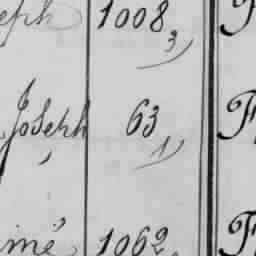 eph 1008 F
3)
Joseph 63 F
1)
imé 1062 F